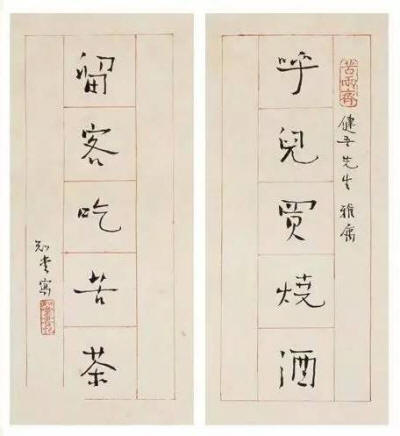 苦雨齋
健吾先生雅属
呼兒買燒酒
留客吃苦茶
知堂寫